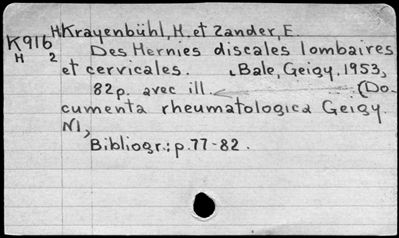 HKrayenbühl, H. et Zander, E.
K916
H 2
Des Hernies discales lombaires
et cervicales. Bale, Geigy, 1953,
82p. avec ill. (Do-
cumenta rheumatologica Geigy
N1,
Bibliogr.: p. 77-82.